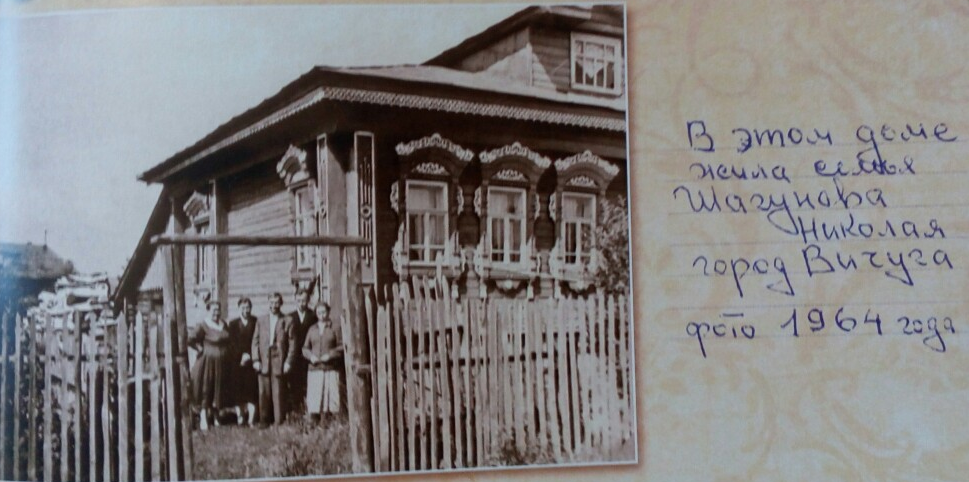 В этом доме
жила семья
Шагунова
Николая
город Вичуга
фото 1964 года